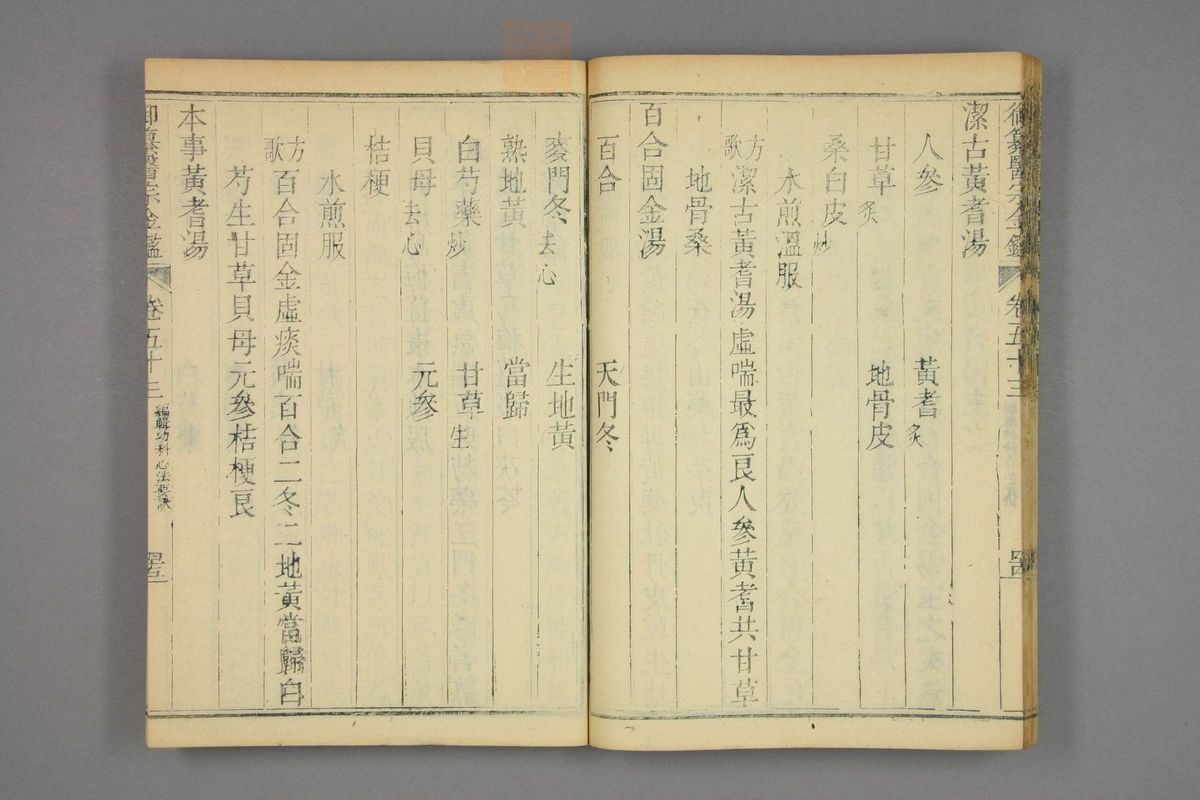 御纂醫宗金鑑 卷五十三
潔古黃耆湯
人參 黃耆炙
甘草炙 地骨皮
桑白皮炒
水煎溫服
方歌 潔古黃耆湯虛喘最爲良人參黃耆共甘草
地骨桑
百合固金湯
百合 天門冬
麥門冬去心 生地黃
熟地黃 當歸
白芍藥炒 甘草生
貝母去心 元參
桔梗
水煎服
方歌 百合固金虛痰喘百合二冬二地黃當歸白
芍生甘草貝母元參桔梗良
本事黃耆湯
御纂醫宗金鑑 卷五十三 編輯幼科心法要訣